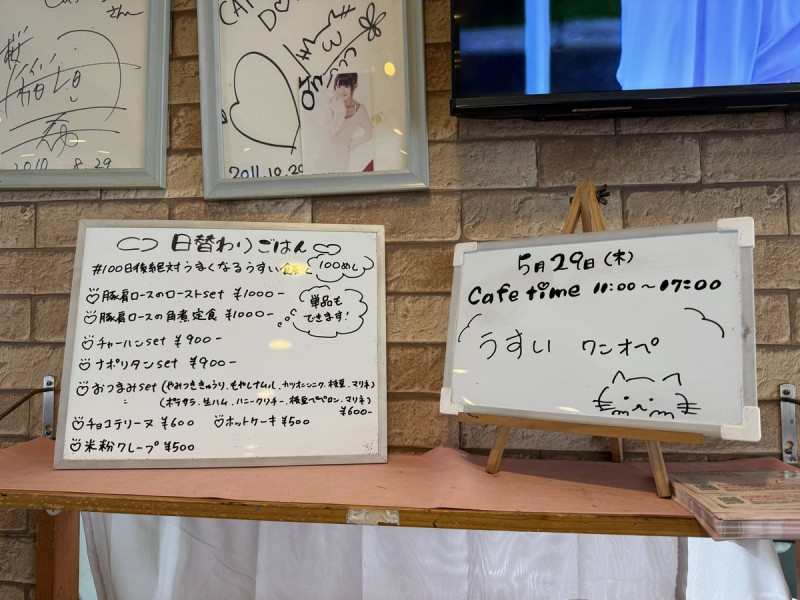 さん
2010 8.29
2011.10.20
日替わりごはん
#100日後絶対うまくなるうすい食堂
100めし
豚肩ロースのローストset ¥1000-
豚肩ロースの角煮定食 ¥1000-
単品も
できます!
チャーハンset ¥900-
ナポリタンset ¥900-
おつまみset (やみつききゅうり、もやしナムル、カツオシンジ、枝豆、マリネ)
〃 (ポテサラ、生ハム、ハニークリチー、枝豆ペペロン、マリネ)
¥600-
チョコテリーヌ ¥600 ホットケーキ ¥500
米粉クレープ ¥500
5月29日(木)
Cafe time 11:00~17:00
うすい ワンオペ